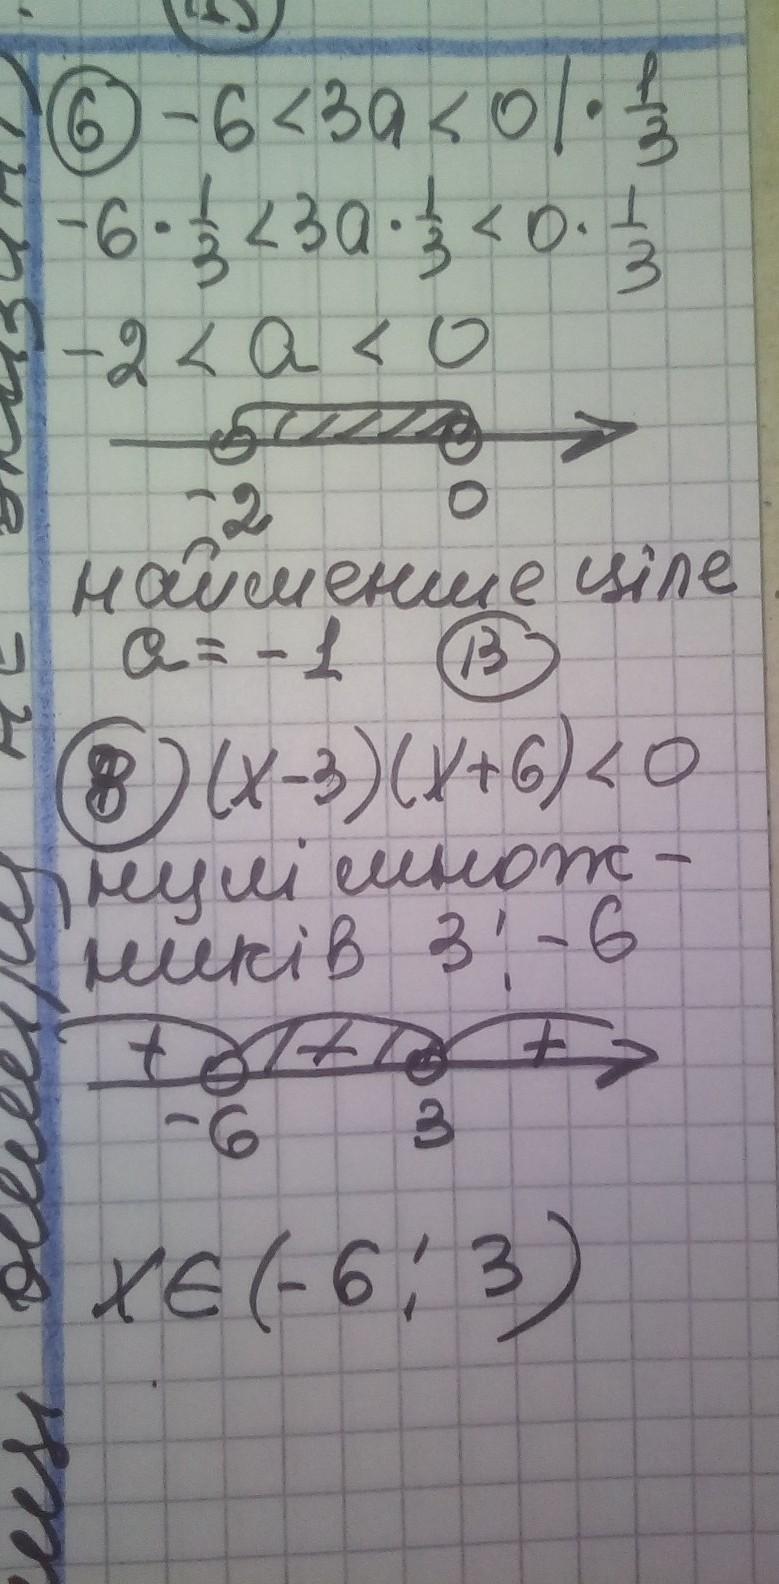 6 -6 < 3a < 0 | · 1/3
-6 · 1/3 < 3a · 1/3 < 0 · 1/3
-2 < a < 0
-2 0
найменше ціле
a = -1 В
8 (x-3)(x+6) < 0
нулі множ-
ників 3; -6
+ + +
-6 3
x ∈ (-6; 3)